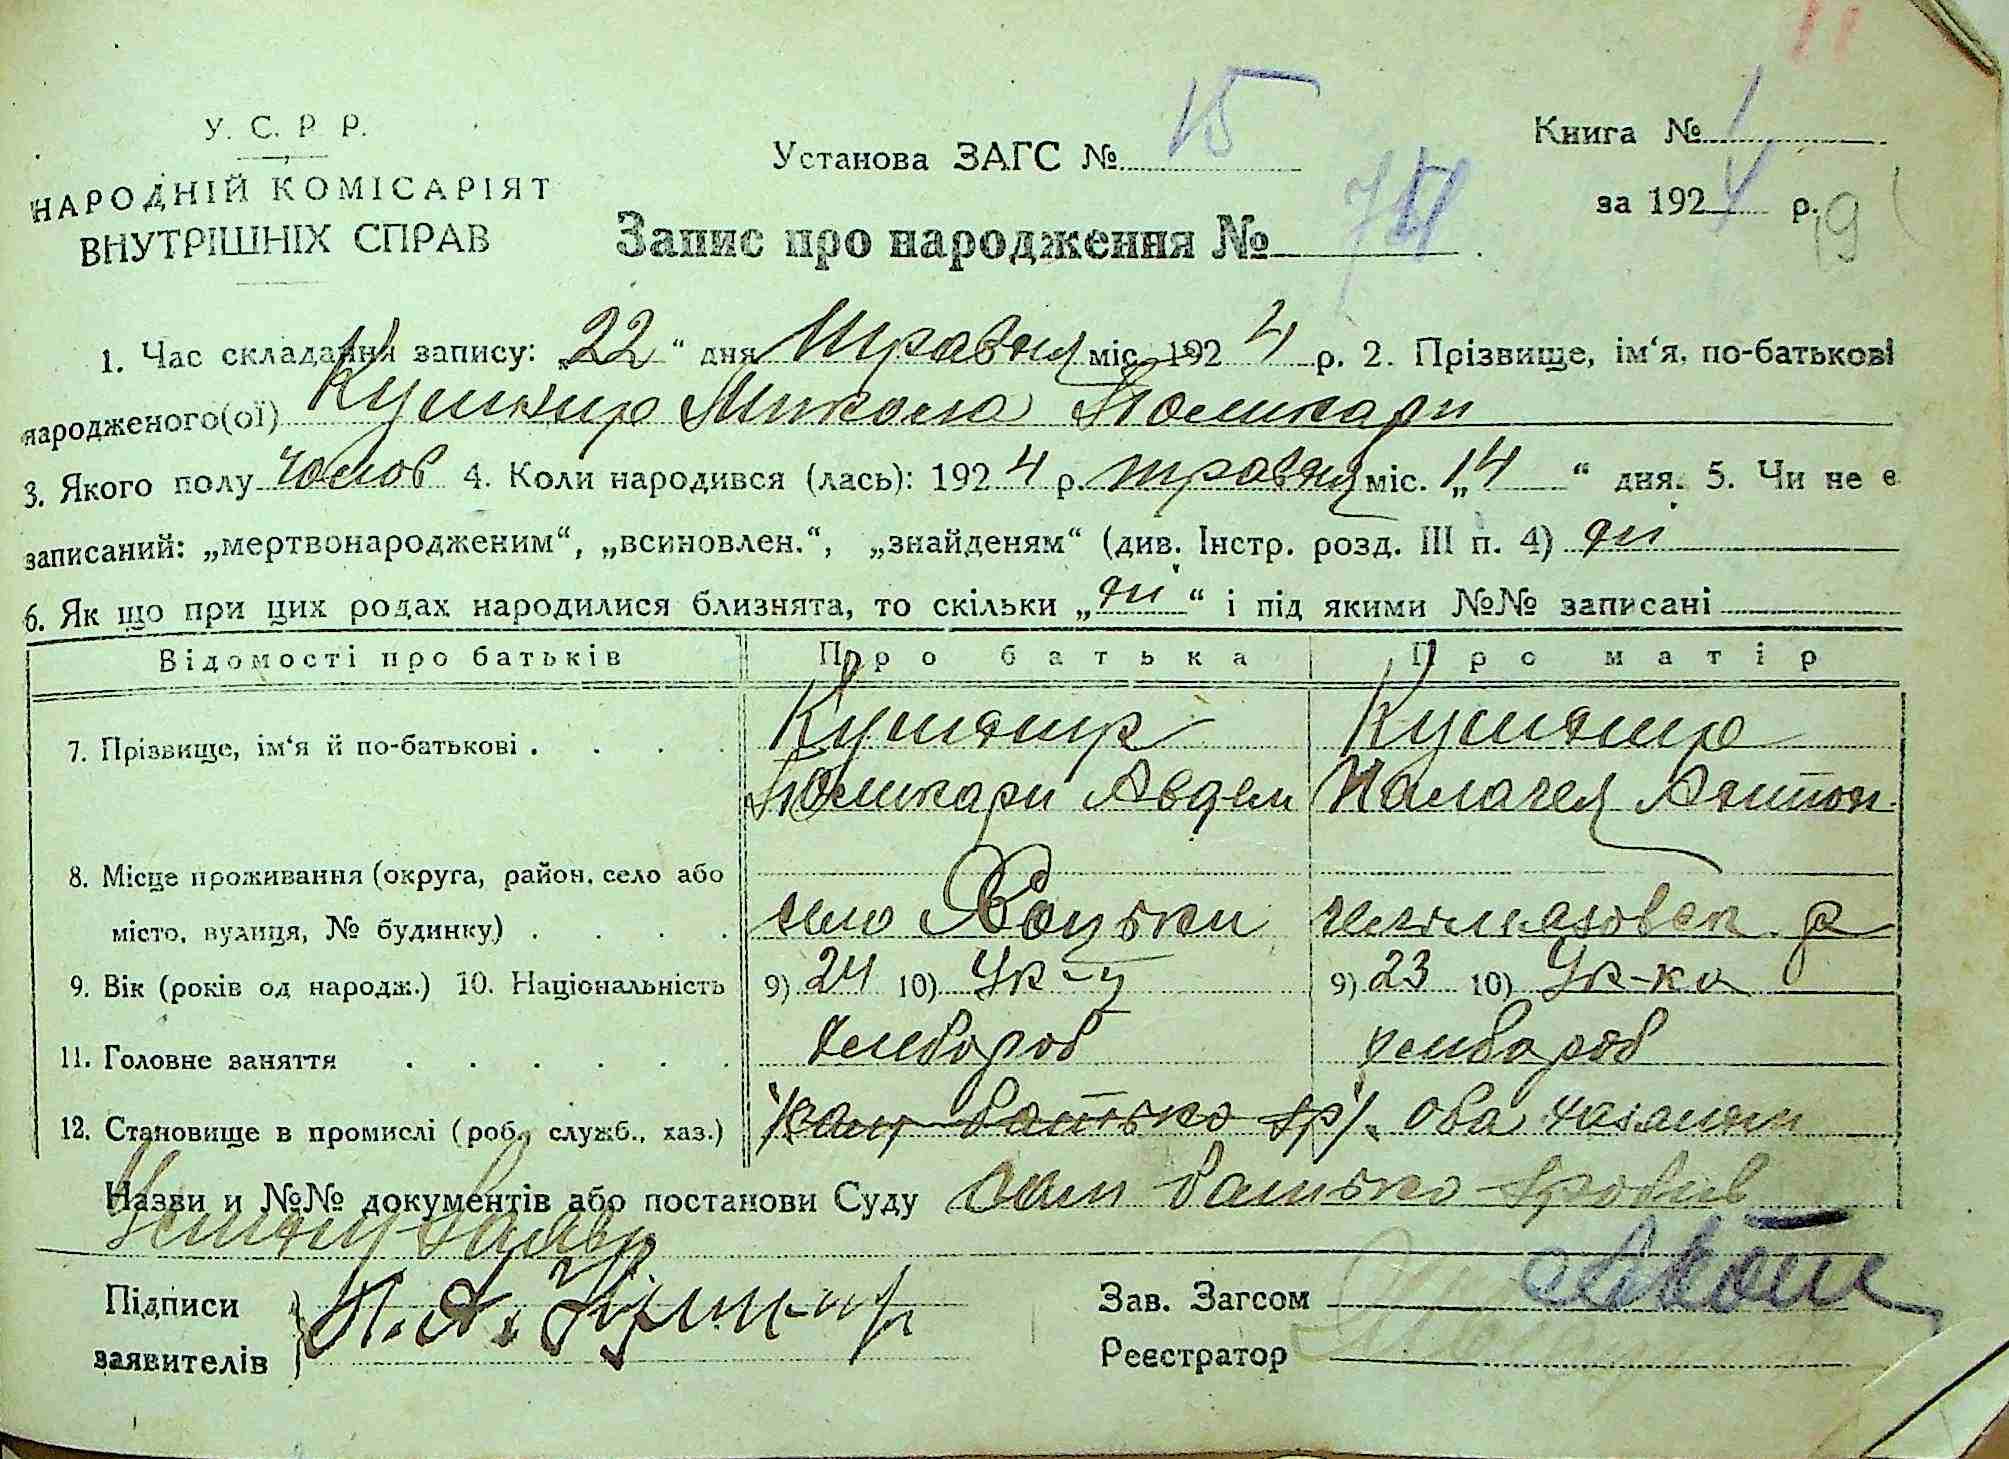 У. С. Р Р.
НАРОДНІЙ КОМІСАРІЯТ
ВНУТРІШНІХ СПРАВ
Установа ЗАГС № 15
Книга № 1
за 1924 р. 19
Запис про народження №
1. Час складання запису: „22“ дня Травня міс. 1924 р. 2. Прізвище, ім‘я, по-батькові
народженого(ої) Кушнир Микола Поликарп
3. Якого полу чолов 4. Коли народився (лась): 1924 р. травня міс. „14“ дня. 5. Чи не є
записаний: „мертвонародженим“, „всиновлен.“, „знайденям“ (див. Інстр. розд. III п. 4) ні
6. Як що при цих родах народилися близнята, то скільки „ні“ і під якими №№ записані
Відомості про батьків Про батька Про матір
7. Прізвище, ім‘я й по-батькові . . . . Кушнир Кушнир
Поликарп Авдеи Палагея Антон
8. Місце проживання (округа, район, село або
місто, вулиця, № будинку) . . . . село Хоцьки
9. Вік (років од народж.) 10. Національність 9) 24 10) Ук-ц 9) 23 10) Ук-ка
11. Головне заняття . . . . . . хлибороб хлибороб
12. Становище в промислі (роб., служб., хаз.) оба хазаини
Назви и №№ документів або постанови Суду сам батько зробив
Устну заяву
Підписи
заявителів П. А. Кушнир
Зав. Загсом
Реєстратор